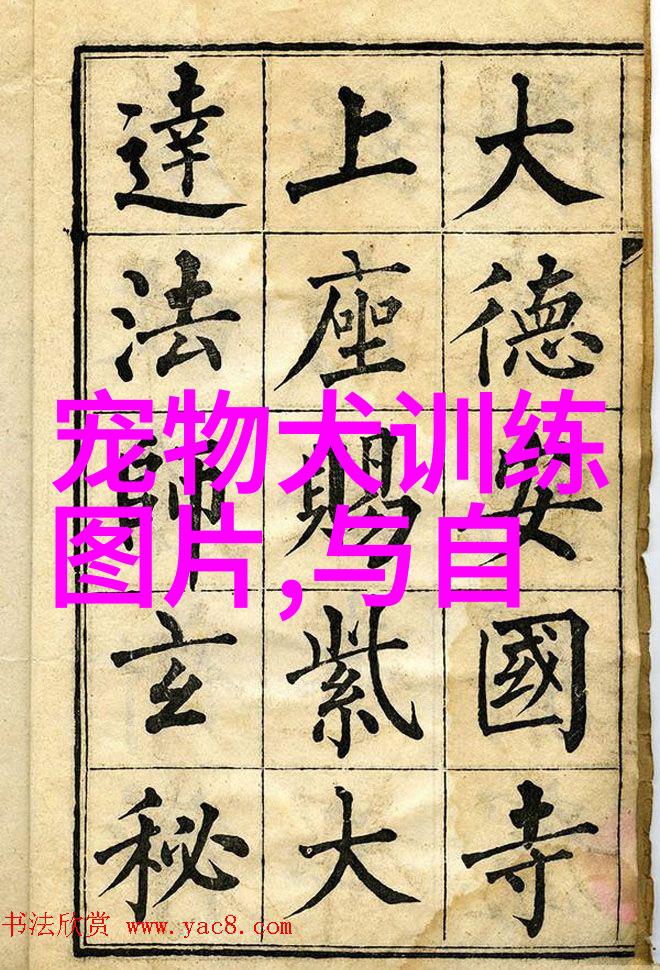 大德安國寺
上座賜紫大
達法師玄秘
宠物犬训练
图片,与自
书法欣赏 www.yac8.com